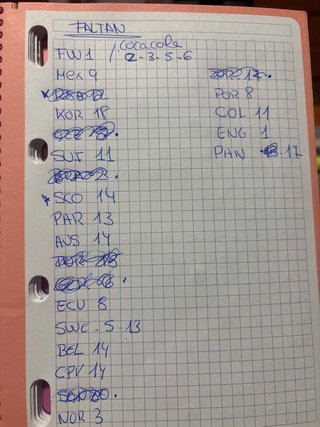 FALTAN
FWC 1 / cocacola
2-3-5-6
Mex 9
KOR 18
SUI 11
SCO 14
PAR 13
AUS 14
ECU 8
SWE - 5 - 13
BEL 14
CPV 14
NOR 3
POR 8
COL 11
ENG 1
PAN 17